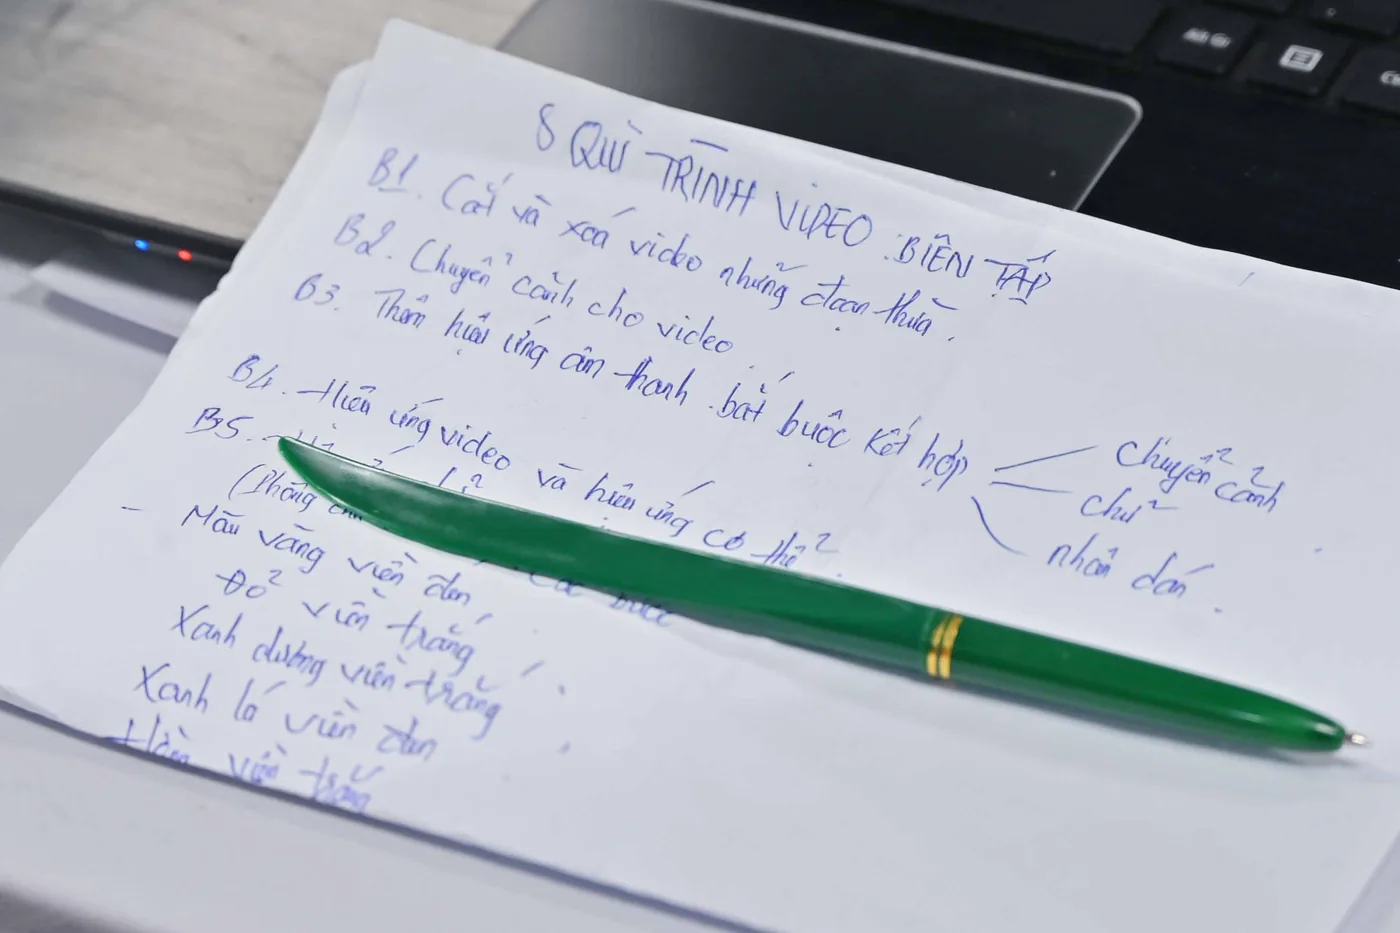 8 QUÌ TRÌNH VIDEO BIÊN TẬP
B1. Cắt và xoá video những đoạn thừa.
B2. Chuyển cảnh cho video.
B3. Thêm hiệu ứng âm thanh bắt buộc kết hợp
chuyển cảnh
chữ
nhãn dán.
B4. Hiệu ứng video và hiệu ứng cơ thể.
B5.
(Phông
- Màu vàng viền đen
Đỏ viền trắng
Xanh dương viền trắng
Xanh lá viền đen
viền trắng
Alt Gr